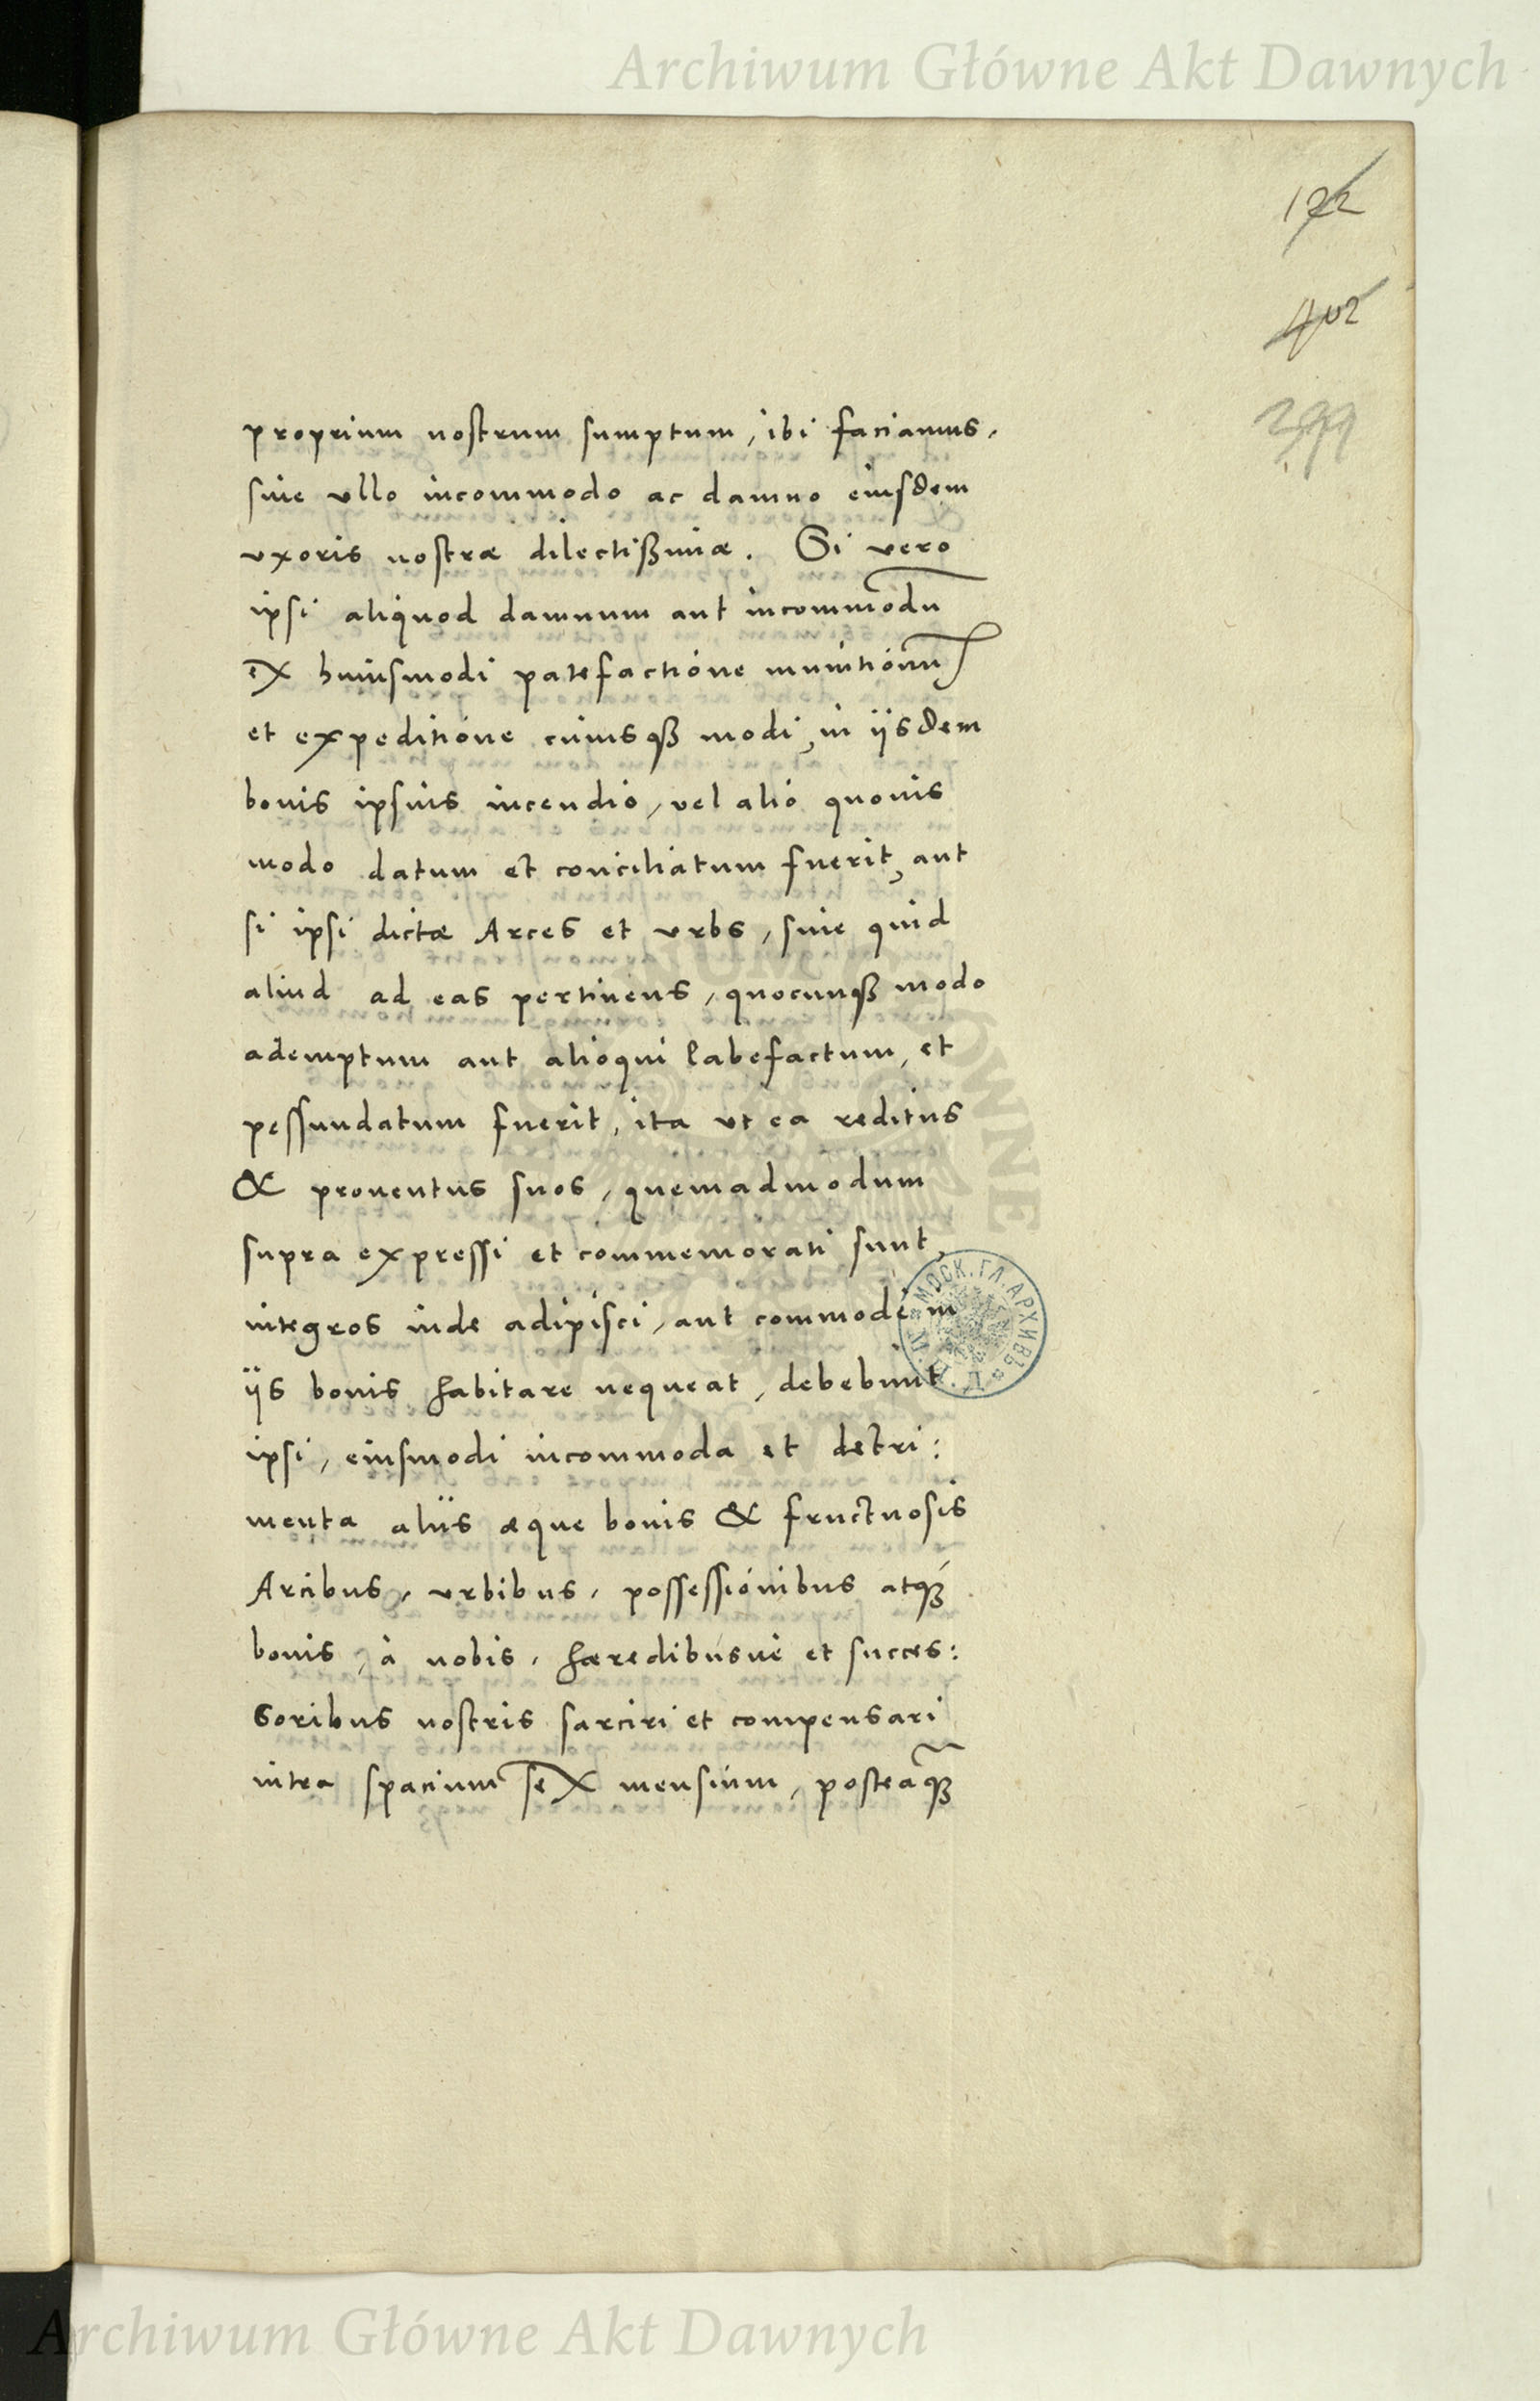 Archiwum Główne Akt Dawnych
122
402
399
proprium nostrum sumptum, ibi faciamus,
sine ullo incommodo ac damno eiusdem
vxoris nostræ dilectißimæ. Si vero
ipsi aliquod damnum aut incommodū
ex huiusmodi patefactione munitionū
et expeditione cuiusqȝ modi, in ijsdem
bonis ipsius incendio, vel alio quouis
modo datum et conciliatum fuerit, aut
si ipsi dictæ Arces et vrbs, siue quid
aliud ad eas pertinens, quocunqȝ modo
ademptum aut alioqui labefactum, et
pessundatum fuerit, ita vt ea reditus
& prouentus suos, quemadmodum
supra expressi et commemorati sunt,
integros inde adipisci, aut commodè in
ijs bonis habitare nequeat, debebunt
ipsi, eiusmodi incommoda et detri:
menta alijs æque bonis & fructuosis
Arcibus, vrbibus, possessionibus atqȝ
bonis, à nobis, hæredibusuè et succes:
soribus nostris sarciri et compensari
intra spacium sex mensium, posteāqȝ
МОСК. ГЛ. АРХИВЪ
Archiwum Główne Akt Dawnych